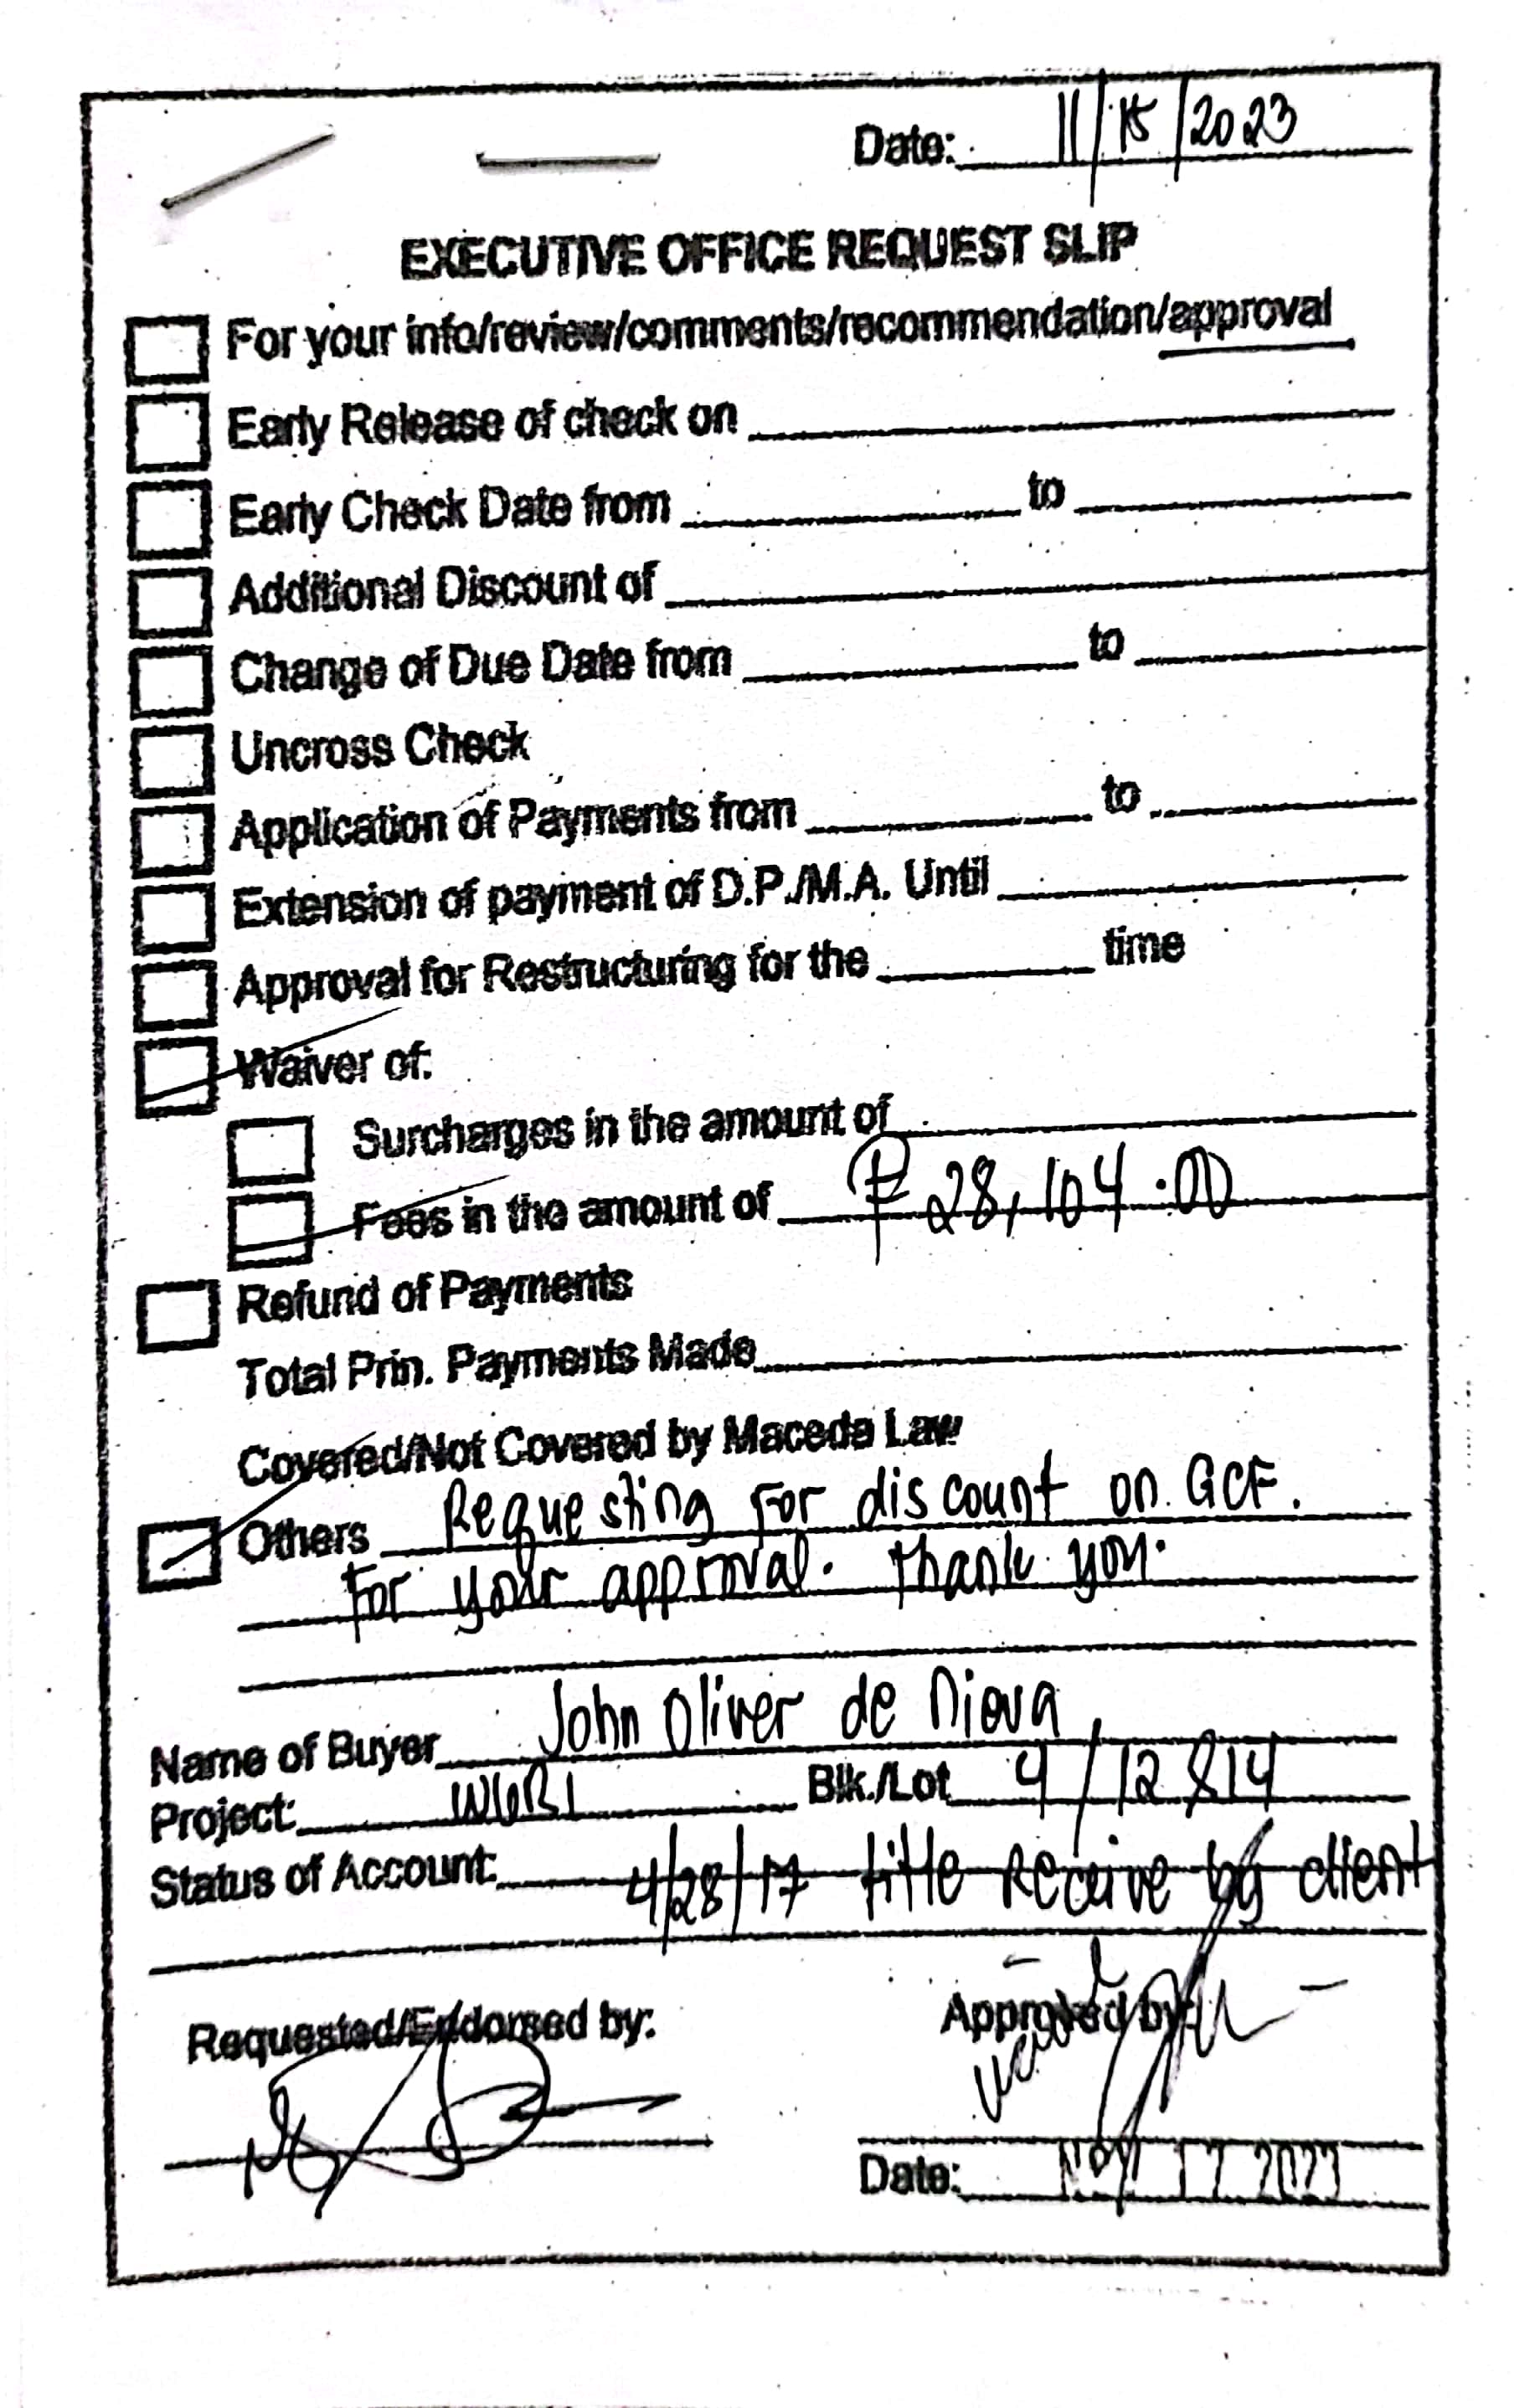 Date: 11/15/2023
EXECUTIVE OFFICE REQUEST SLIP
For your info/review/comments/recommendation/approval
Early Release of check on
Early Check Date from to
Additional Discount of
Change of Due Date from to
Uncross Check
Application of Payments from to
Extension of payment of D.P./M.A. Until
Approval for Restructuring for the time
Waiver of:
Surcharges in the amount of
Fees in the amount of ₱ 28,104.00
Refund of Payments
Total Prin. Payments Made
Covered/Not Covered by Maceda Law
Others Requesting For discount on GCF.
For your approval. Thank you.
Name of Buyer John Oliver de
Project: Blk./Lot 4/12 & 14
Status of Account: 4/28/17 title Receive by client
Requested/Endorsed by: Approved by:
Date: NOV 17 2023